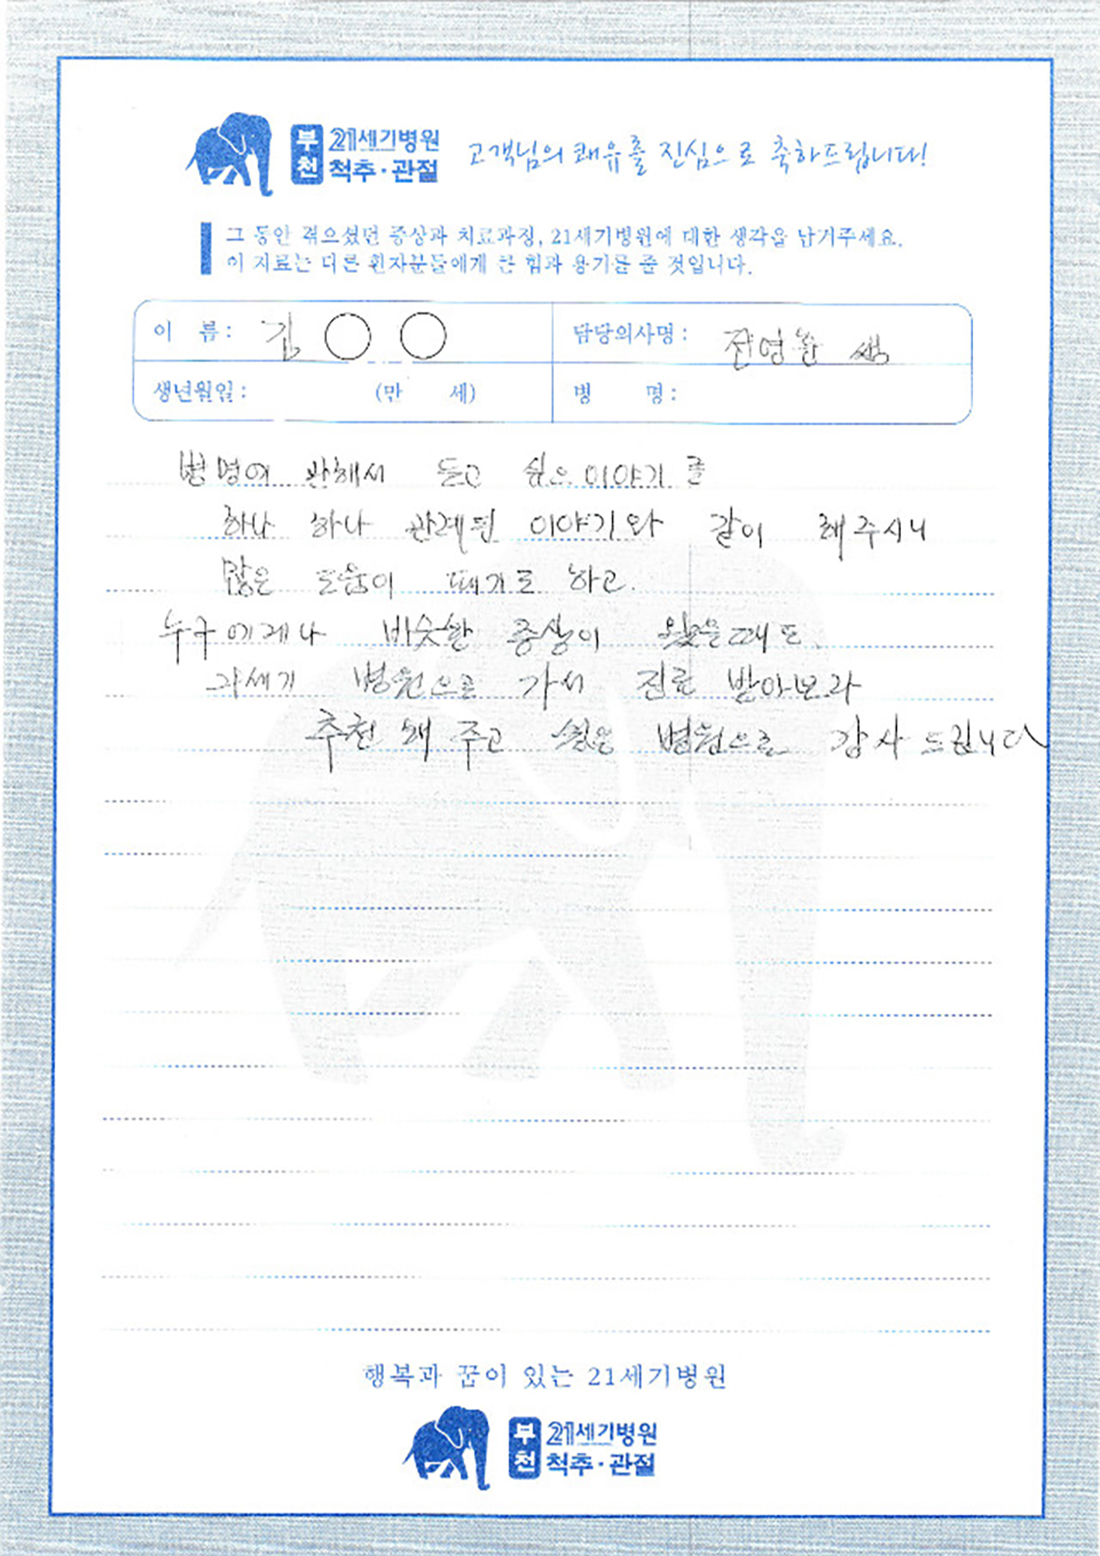 부천 21세기병원 척추·관절 고객님의 쾌유를 진심으로 축하드립니다!
그 동안 겪으셨던 증상과 치료과정, 21세기병원에 대한 생각을 남겨주세요.
이 자료는 다른 환자분들에게 큰 힘과 용기를 줄 것입니다.
이 름 : 김 ○ ○ 담당의사명 : 전영환 쌤
생년월일 : (만 세) 병 명 :
병명에 관해서 듣고 싶은 이야기를
하나 하나 관계된 이야기와 같이 해주시니
많은 도움이 때기도 하고.
누구에게나 비슷한 증상이 왔을때도
21세기 병원으로 가서 진료 받아보라
추천해 주고 싶은 병원으로 감사 드립니다
행복과 꿈이 있는 21세기병원
부천 21세기병원 척추·관절